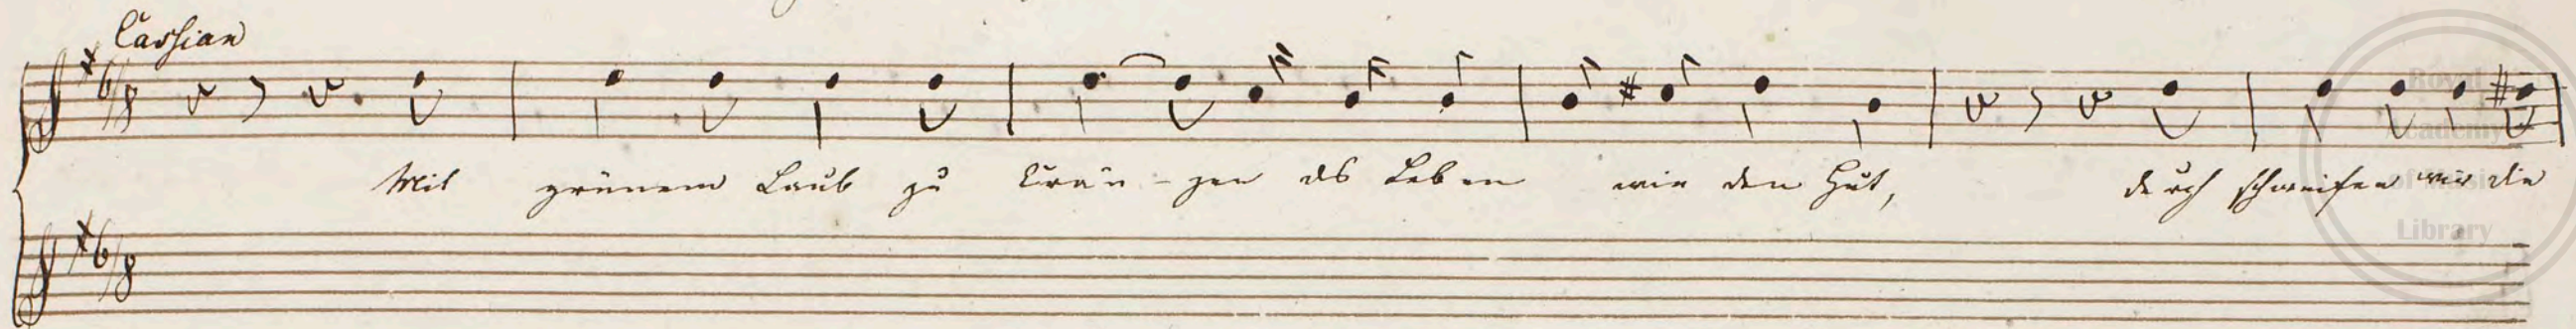 Cassian
6/8
Mit grünem Laub zu Krän-zen das Leben wie den Hut, durch schweifen wir die
6/8
Royal
Academy
of Music
Library